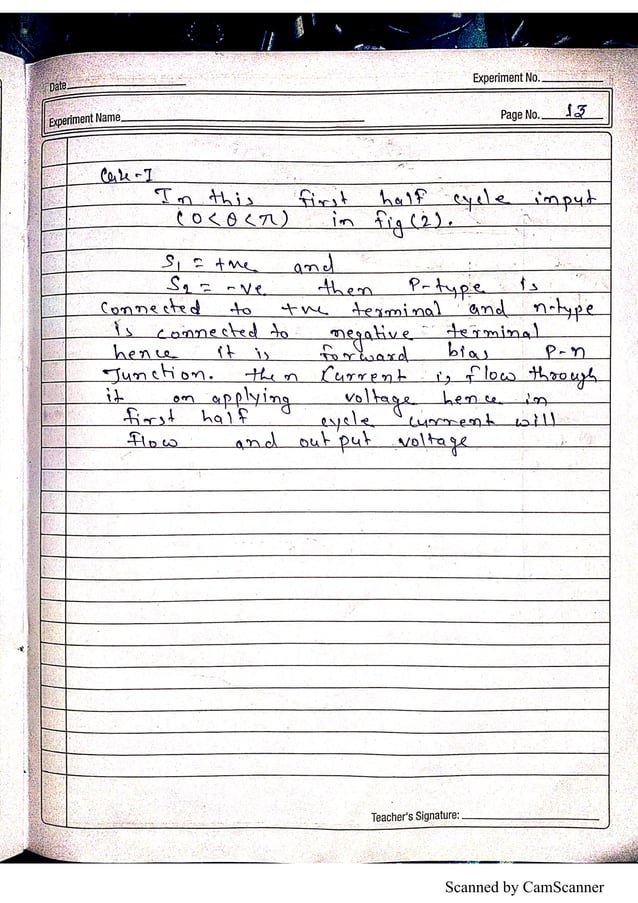 Date
Experiment No.
Experiment Name
Page No. 13
Case-I
In this first half cycle input
(0<θ<π) in fig(2).
S1 = +ve and
S2 = -ve then P-type is
connected to +ve terminal and n-type
is connected to negative terminal
hence it is forward bias P-n
Junction. then current is flow through
it on applying voltage hence in
first half cycle current will
flow and out put voltage
Teacher's Signature:
Scanned by CamScanner